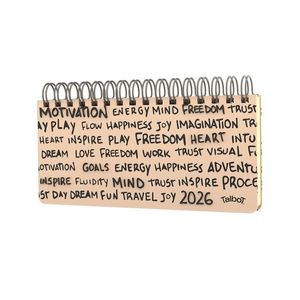 MOTIVATION ENERGY MIND FREEDOM TRUST
AY PLAY FLOW HAPPINESS JOY IMAGINATION TRA
HEART INSPIRE PLAY FREEDOM HEART INTU
DREAM LOVE FREEDOM WORK TRUST VISUAL F
MOTIVATION GOALS ENERGY HAPPINESS ADVENTU
INSPIRE FLUIDITY MIND TRUST INSPIRE PROCE
ST DAY DREAM FUN TRAVEL JOY 2026 Talbot